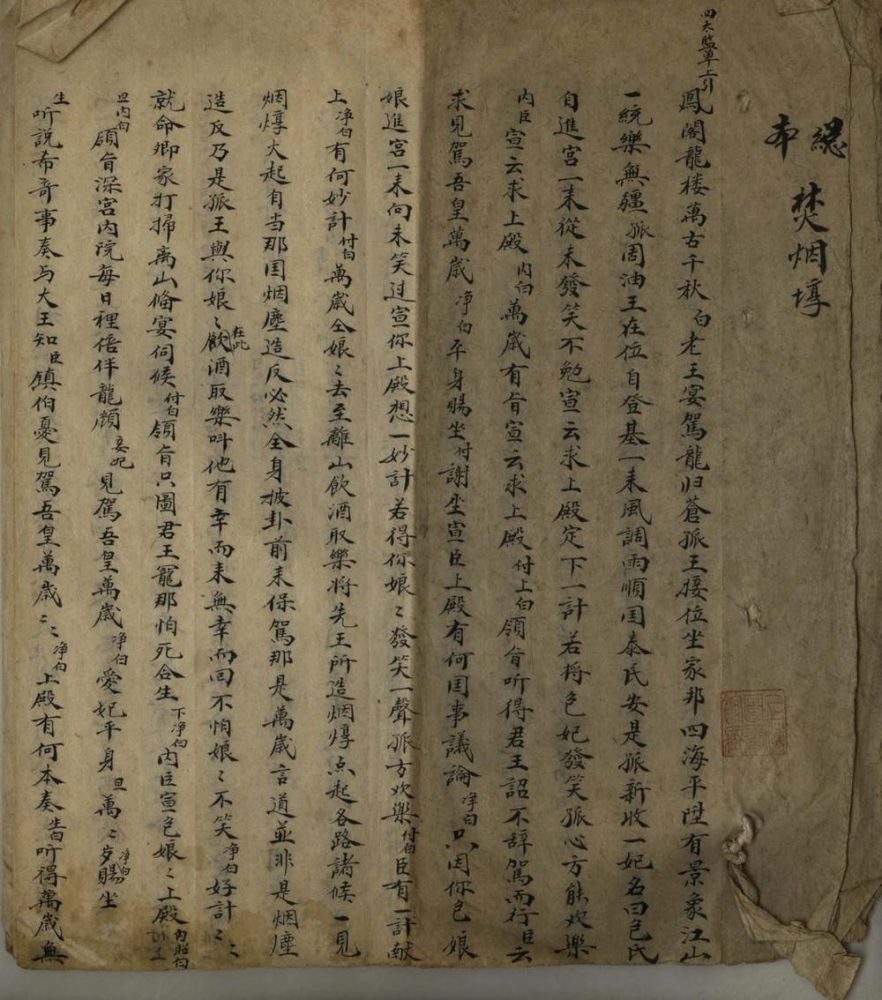 總本 焚烟墩
四太監單上引
鳳閣龍楼萬古千秋白老王宴駕龍归蒼孤王接位坐家邦四海平陞有景象江山
一統樂無疆孤周油王在位自登基一耒風調雨順囯泰民安是孤新收一妃名曰包氏
自進宮一耒從未發笑不勉宣云求上殿定下一計若將包妃發笑孤心方能欢樂
内臣宣云求上殿内白萬歲有旨宣云求上殿付上白領旨听得君王詔不辞駕而行臣云
求見駕吾皇萬歲净白平身賜坐付謝坐宣臣上殿有何囯事議論净白只因你包娘
娘進宮一耒向未笑过宣你上殿想一妙計若得你娘〻發笑一聲孤方欢樂付白臣有一計献
上净白有何妙計付白萬歲仝娘〻去至離山飲酒取樂将先王所造烟煙点起各路諸候一見
烟煙大起自当那囯烟塵造反必然全身披卦前耒保駕那是萬歲言道並非是烟塵
造反乃是孤王與你娘〻在此飲酒取樂呌他有幸而耒無幸而回不怕娘〻不笑净白好計〻〻
就命卿家打掃离山俻宴伺候付白領旨只圖君王寵那怕死合生下净白内臣宣包娘〻上殿内照白
旦内白領旨深宮内院每日裡倍伴龍顔妾妃見駕吾皇萬歲净白愛妃平身旦萬〻歲净白賜坐
生听說希奇事奏与大王知臣鎮伯憂見駕吾皇萬歲〻〻净白上殿有何本奏生白听得萬歲無